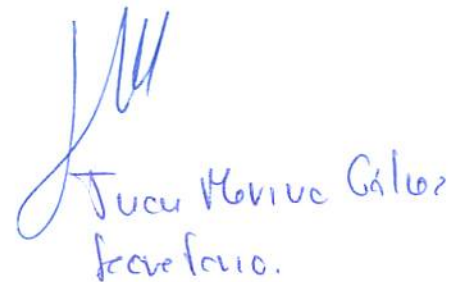 Juan Molina Gálvez
Secretario.